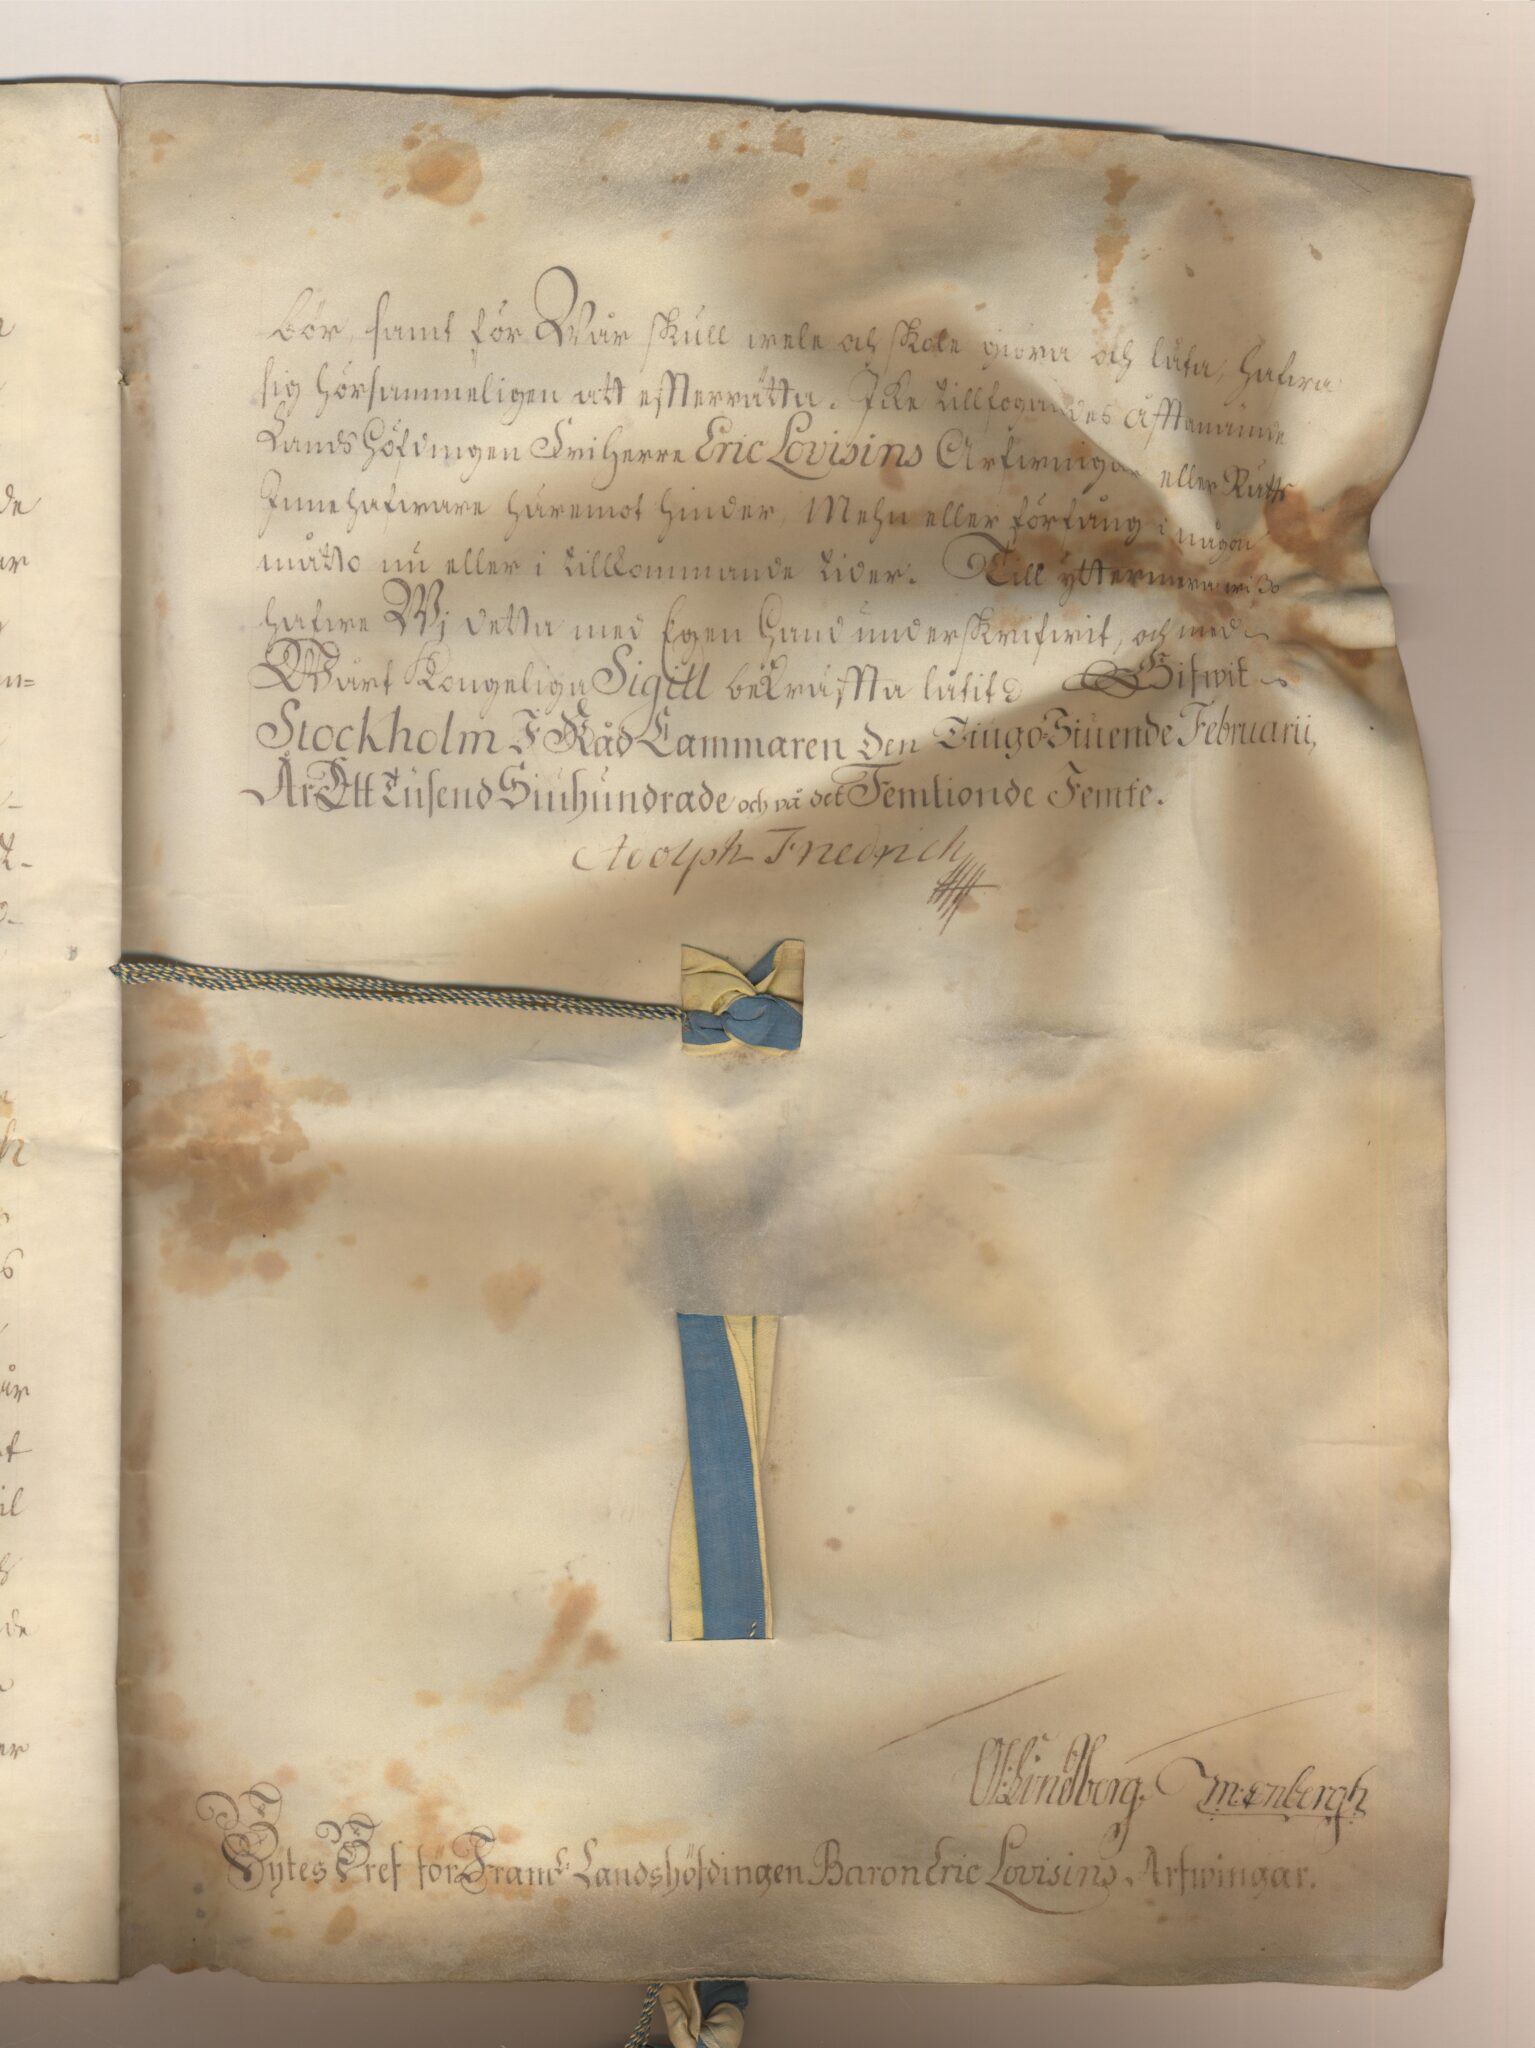 bör, samt för Wår skull wele och skole giöra och låta, hafwa
sig hörsammeligen att effterrätta. Icke tillfogandes åfftanämde
Landshöfdingen Friherre Eric Lovisins Arfwingar eller Rätts
Innehafware häremot hinder, Mehn eller förfång i någon
måtto nu eller i tillkommande tider. Till yttermera wißo
hafwe Wj detta med Egen Hand underskrifwit, och med
Wårt Kongeliga Sigill bekräffta låtit. Gifwit
Stockholm I Råd Cammaren den Tiugo Siuende Februarii,
År Ett Tusend Siuhundrade och på det Femtionde Femte.
Adolph Friedrich
Lindberg.
Bytes Bref för Fram. Landshöfdingen Baron Eric Lovisins Arfwingar.
de
ar
un=
år
il
de
er